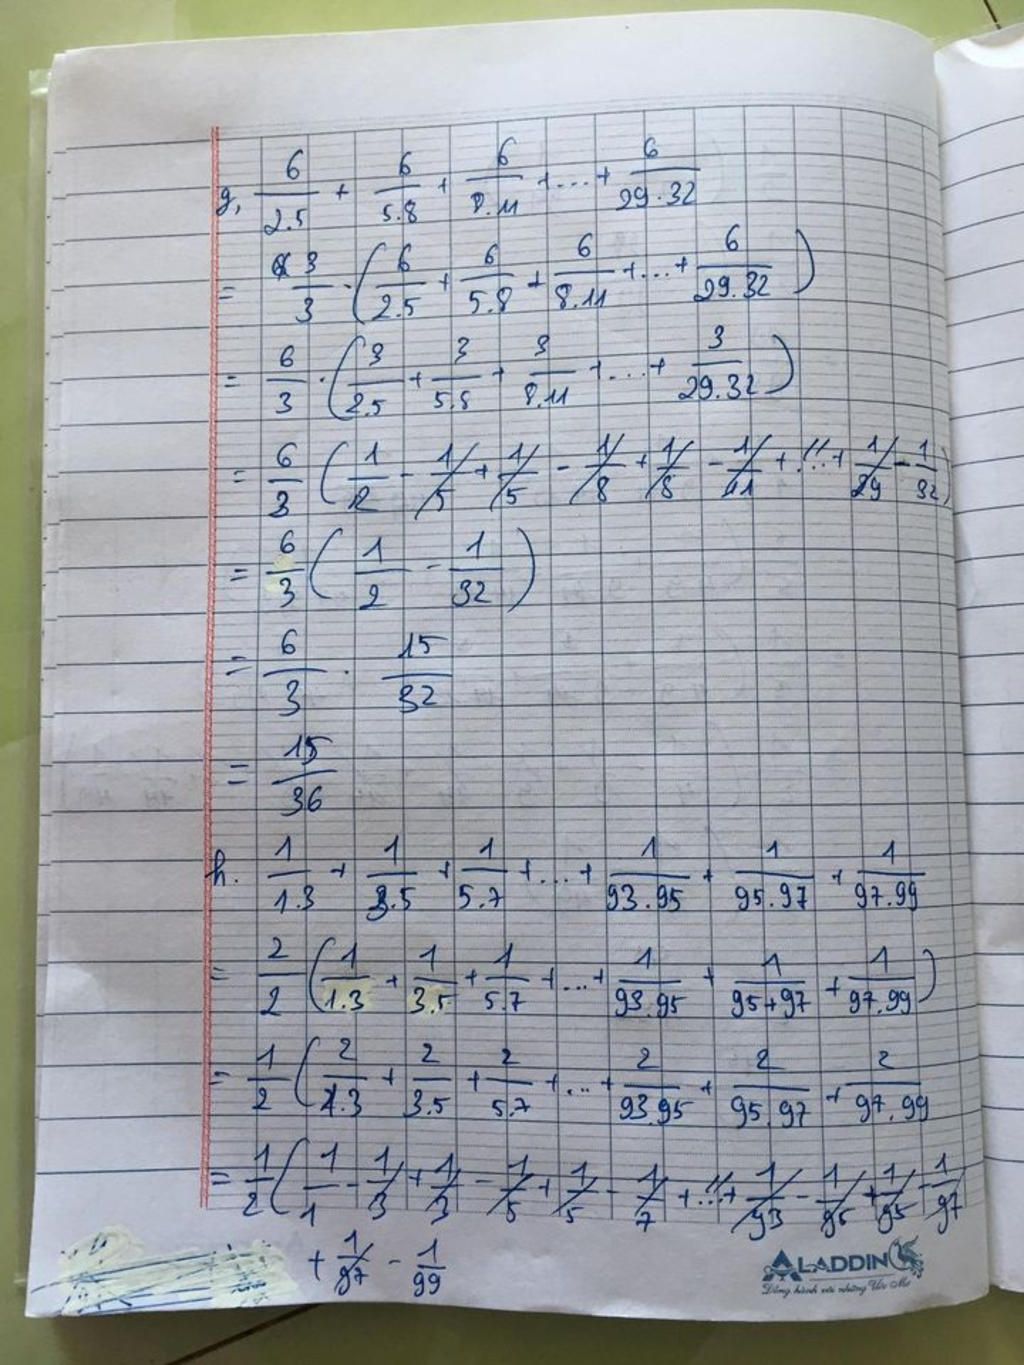 g, 6/2.5 + 6/5.8 + 6/8.11 + ... + 6/29.32
= 3/3 . (6/2.5 + 6/5.8 + 6/8.11 + ... + 6/29.32)
= 6/3 . (3/2.5 + 3/5.8 + 3/8.11 + ... + 3/29.32)
= 6/3 (1/2 - 1/5 + 1/5 - 1/8 + 1/8 - 1/11 + ... + 1/29 - 1/32)
= 6/3 (1/2 - 1/32)
= 6/3 . 15/32
= 15/36
h. 1/1.3 + 1/3.5 + 1/5.7 + ... + 1/93.95 + 1/95.97 + 1/97.99
= 2/2 (1/1.3 + 1/3.5 + 1/5.7 + ... + 1/93.95 + 1/95+97 + 1/97.99)
= 1/2 (2/1.3 + 2/3.5 + 2/5.7 + ... + 2/93.95 + 2/95.97 + 2/97.99
= 1/2 (1/1 - 1/3 + 1/3 - 1/5 + 1/5 - 1/7 + ... + 1/93 - 1/95 + 1/95 - 1/97
+ 1/97 - 1/99
ALADDIN
Đồng hành với những Ước Mơ